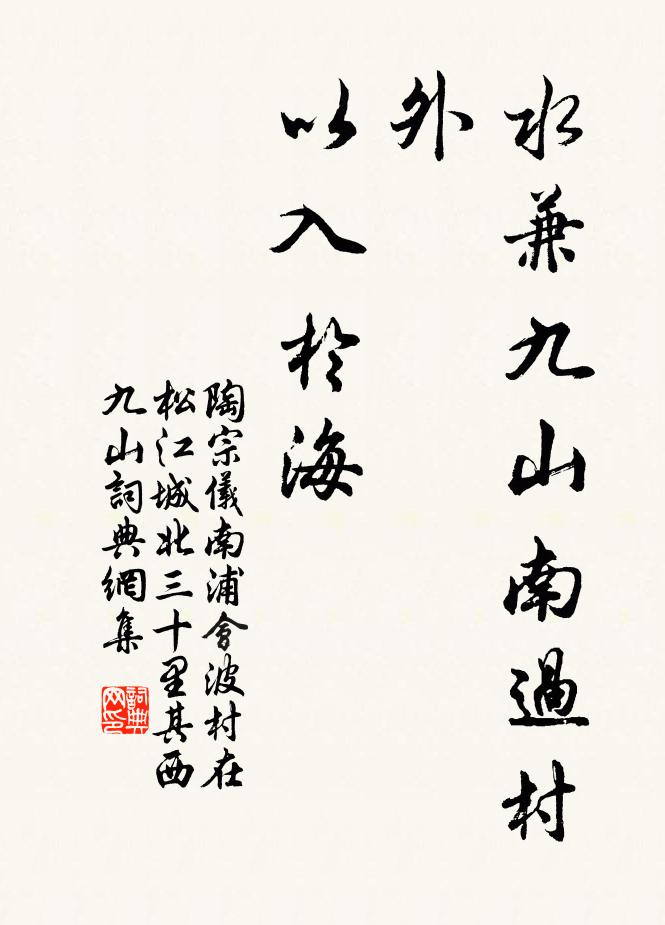 水兼九山南過村
外
以入於海
陶宗儀南浦會波村在
松江城北三十里其西
九山詞典網集
詞典网印